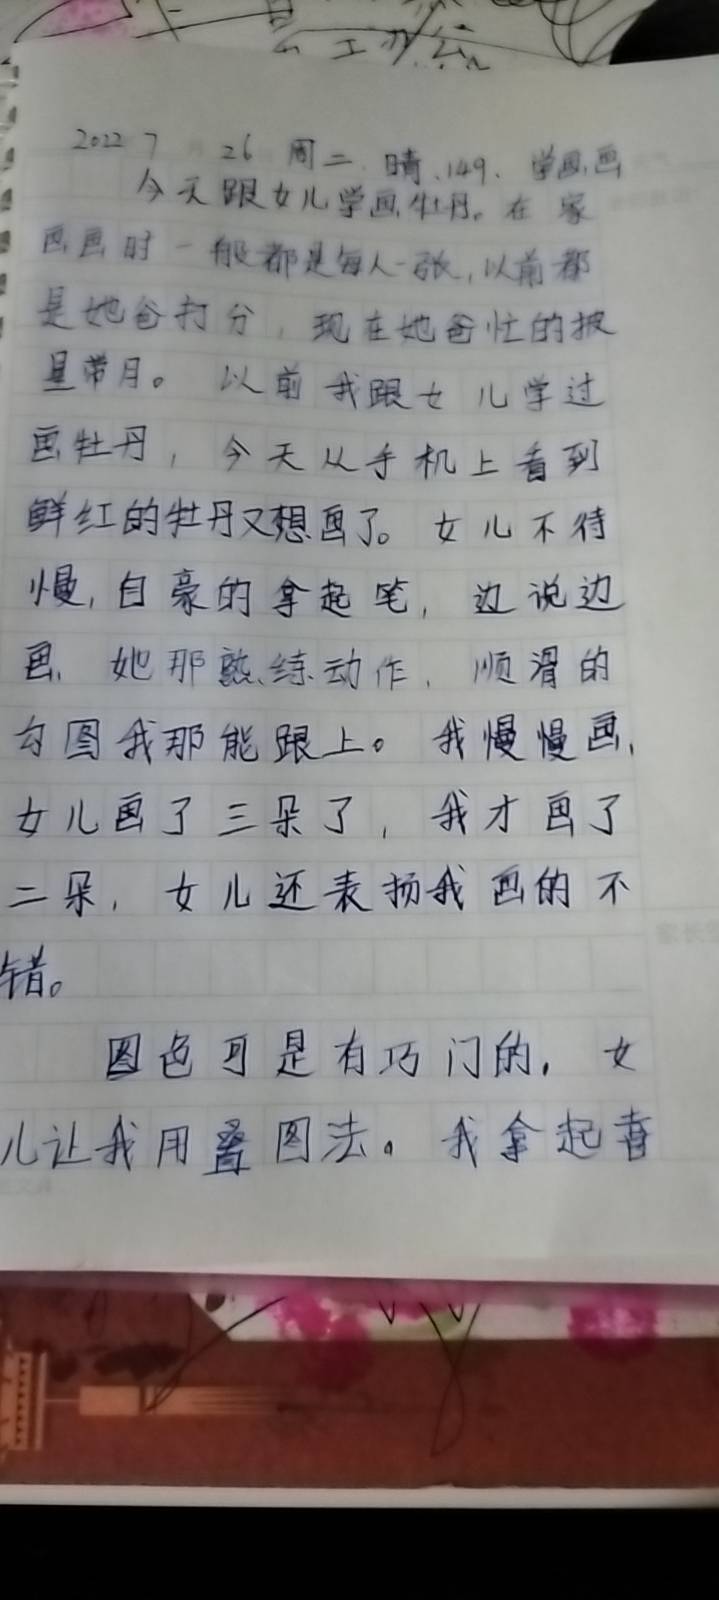 工办公
2022 7 26 周二.晴、149、学画画
今天跟女儿学画牡丹。在家
画画时一般都是每人一张,以前都
是她爸打分,现在她爸忙的披
星带月。以前我跟女儿学过
画牡丹,今天从手机上看到
鲜红的牡丹又想画了。女儿不待
慢,自豪的拿起笔,边说边
画、她那熟练动作,顺滑的
勾图我那能跟上。我慢慢画,
女儿画了三朵了,我才画了
二朵,女儿还表扬我画的不
错。
图色可是有巧门的,女
儿让我用叠图法。我拿起喜